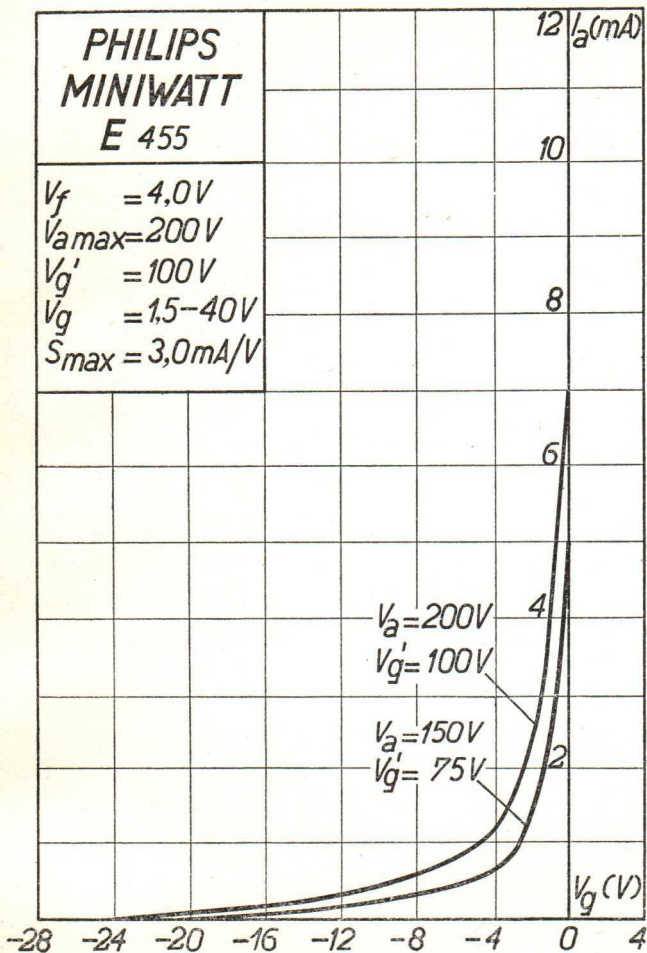 PHILIPS
MINIWATT
E 455
Vf = 4,0V
Va max = 200V
Vg' = 100V
Vg = 1,5-40V
Smax = 3,0mA/V
12 Ia(mA)
10
8
6
4
Va=200V
Vg'=100V
Va=150V
Vg'= 75V
2
Vg(V)
-28 -24 -20 -16 -12 -8 -4 0 4